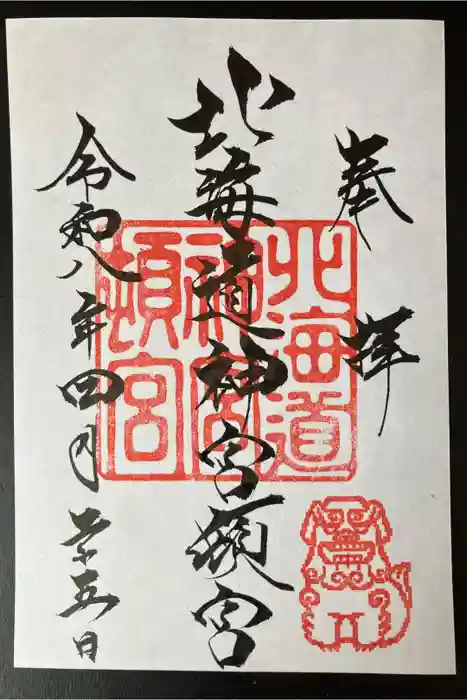 奉拝
北海道神宮頓宮
北海道
神宮
頓宮
令和八年四月廿五日